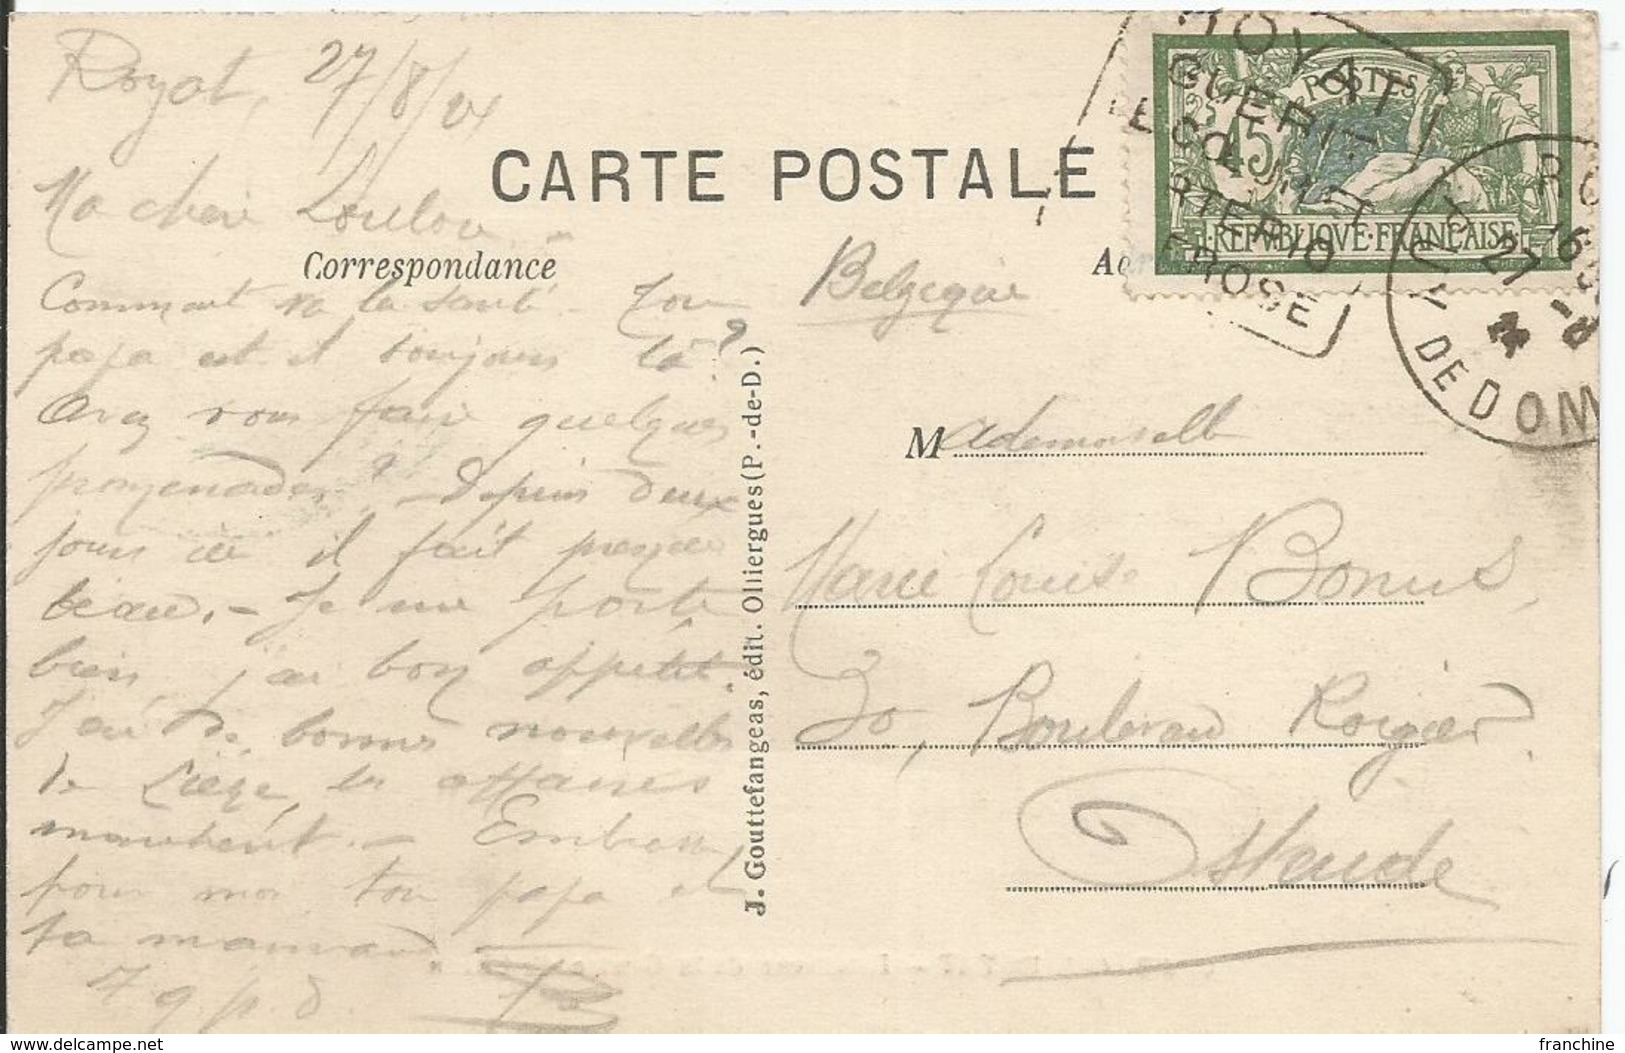 Royat, 27/8/24
Ma chère Loulou
Comment va la santé. Ton
papa est-il toujours là?
Avez vous fait quelques
promenades? - Depuis deux
jours ici il fait presque
beau. - Je me porte
bien, j'ai bon appétit.
J'ai de bonnes nouvelles
de Liège, les affaires
marchent. - Embrasse
pour moi ton papa et
ta maman.
CARTE POSTALE
Correspondance
J. Gouttefangeas, édit. Olliergues (P.-de-D.)
Belgique
Mademoiselle
Marie Louise Bonus,
30, Boulevard Rogier
Ostende
POSTES
45
REPVBLIQVE FRANÇAISE
ROYAT
GUERIT
GOUTTE
ARTERIO
SCLEROSE
RO
16
27 -8
PUY DE DOM
Copyright franchine